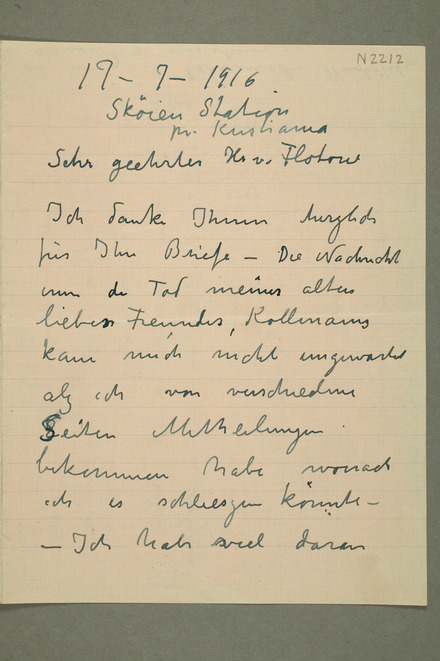 N2212
17-7-1916
Sköien Station
pr. Kristiania
Sehr geehrter Hr v. Flotow
Ich danke Ihnen herzlich
für Ihr Briefe – Die Nachricht
vom de Tod meines alten
lieben Freundes, Kollmanns
kam mich nicht ungewartet
als ich von verschiedene
Seiten Mittheilungen
bekommen habe wonach
ich es schlieszen könnte –
– Ich habe viel daran